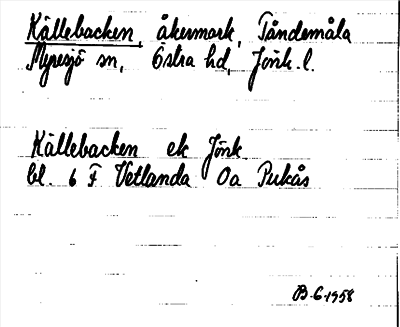 Källebacken, åkermark, Tåndemåla
Myresjö sn, Östra hd, Jönk. l.
Källebacken ek Jönk
bl. 6 F Vetlanda Oa Pukås
B. G. 1958